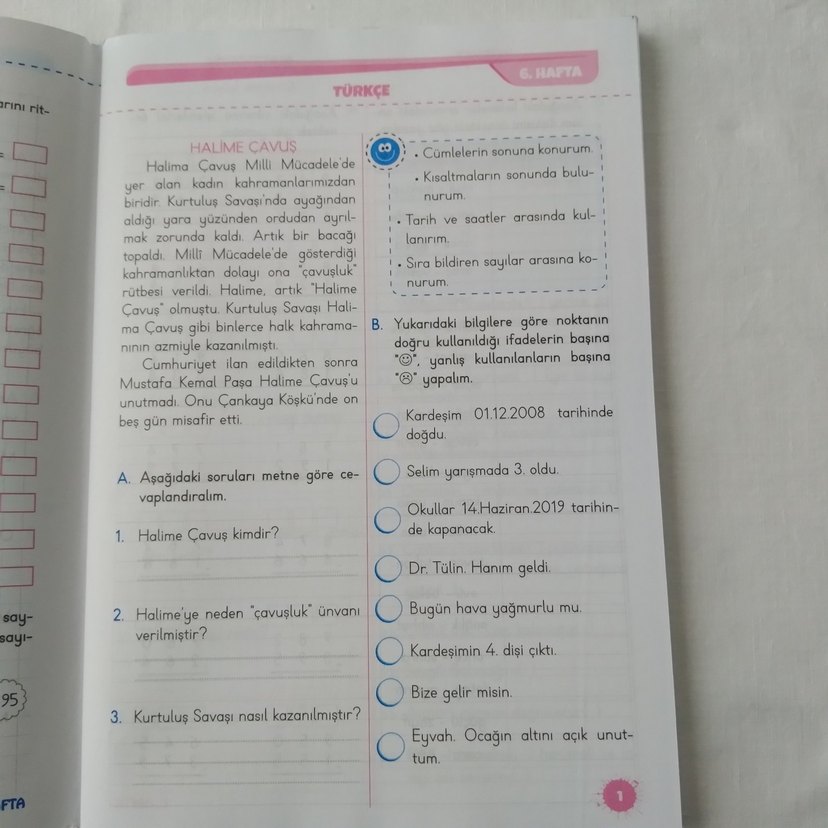 arını rit-
=
=
say-
sayı-
95
FTA
6. HAFTA
TÜRKÇE
HALİME ÇAVUŞ
Halima Çavuş Milli Mücadele'de
yer alan kadın kahramanlarımızdan
biridir. Kurtuluş Savaşı'nda ayağından
aldığı yara yüzünden ordudan ayrıl-
mak zorunda kaldı. Artık bir bacağı
topaldı. Millî Mücadele'de gösterdiği
kahramanlıktan dolayı ona "çavuşluk"
rütbesi verildi. Halime, artık "Halime
Çavuş" olmuştu. Kurtuluş Savaşı Hali-
ma Çavuş gibi binlerce halk kahrama-
nının azmiyle kazanılmıştı.
Cumhuriyet ilan edildikten sonra
Mustafa Kemal Paşa Halime Çavuş'u
unutmadı. Onu Çankaya Köşkü'nde on
beş gün misafir etti.
A. Aşağıdaki soruları metne göre ce-
vaplandıralım.
1. Halime Çavuş kimdir?
2. Halime'ye neden "çavuşluk" ünvanı
verilmiştir?
3. Kurtuluş Savaşı nasıl kazanılmıştır?
• Cümlelerin sonuna konurum.
• Kısaltmaların sonunda bulu-
nurum.
• Tarih ve saatler arasında kul-
lanırım.
• Sıra bildiren sayılar arasına ko-
nurum.
B. Yukarıdaki bilgilere göre noktanın
doğru kullanıldığı ifadelerin başına
"☺", yanlış kullanılanların başına
"☹" yapalım.
Kardeşim 01.12.2008 tarihinde
doğdu.
Selim yarışmada 3. oldu.
Okullar 14.Haziran.2019 tarihin-
de kapanacak.
Dr. Tülin. Hanım geldi.
Bugün hava yağmurlu mu.
Kardeşimin 4. dişi çıktı.
Bize gelir misin.
Eyvah. Ocağın altını açık unut-
tum.
1